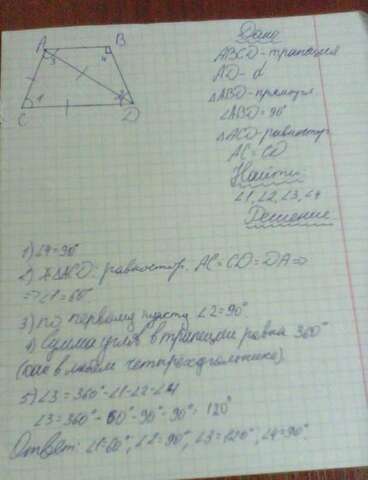 A
B
3
4
1
C
D
Дано
ABCD-трапеция
AD-d
△ABD-прямоуг
∠ABD=90°
△ACD-равностор
AC=CD
Найти
∠1,∠2,∠3,∠4
Решение
1) ∠4=90°
2) △ACD: равностор. AC=CD=DA⇒
⇒∠1=60°
3) по первому пункту ∠2=90°
4) Сумма углов в трапеции равна 360°
(как в любом четырехугольнике)
5) ∠3=360°-∠1-∠2-∠4
∠3=360°-60°-90°-90°=120°
Ответ: ∠1=60°, ∠2=90°, ∠3=120°, ∠4=90°.